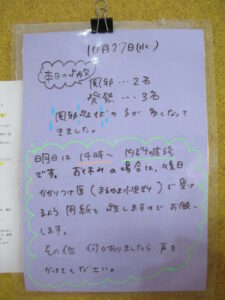 10月27日(火)
本日の欠席
風邪…2名
発熱…3名
風邪症状の子が多くなって
きました。
明日は 14時〜 内科健診
です。お休みの場合は、後日
かかりつけ医(まるやま小児科)で受け
るよう用紙を渡しますのでお願い
します。
その他 何かありましたら声を
かけてください。